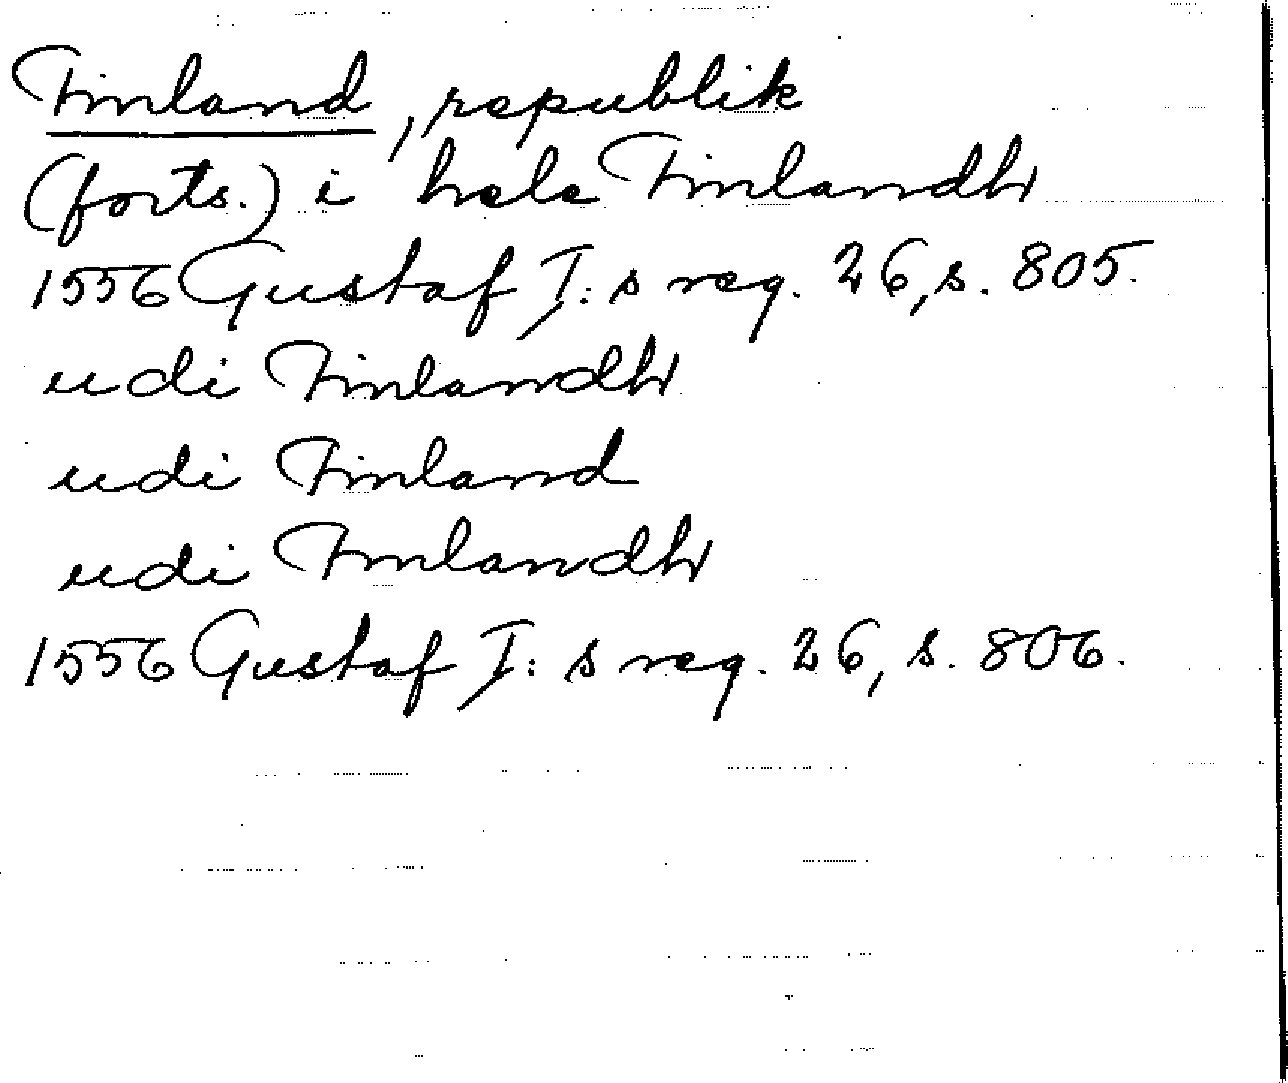 Finland, republik
(forts.) i hele Finlandh
1556 Gustaf I:s reg. 26, s. 805.
udi Finlandh
udi Finland
udi Finlandh
1556 Gustaf I:s reg. 26, s. 806.